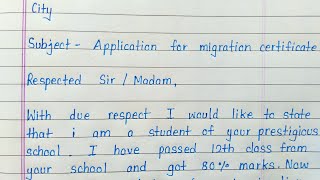 City
Subject - Application for migration certificate
Respected Sir / Madam,
With due respect I would like to state
that i am a student of your prestigious
school. I have passed 12th class from
your school and got 80% marks. Now